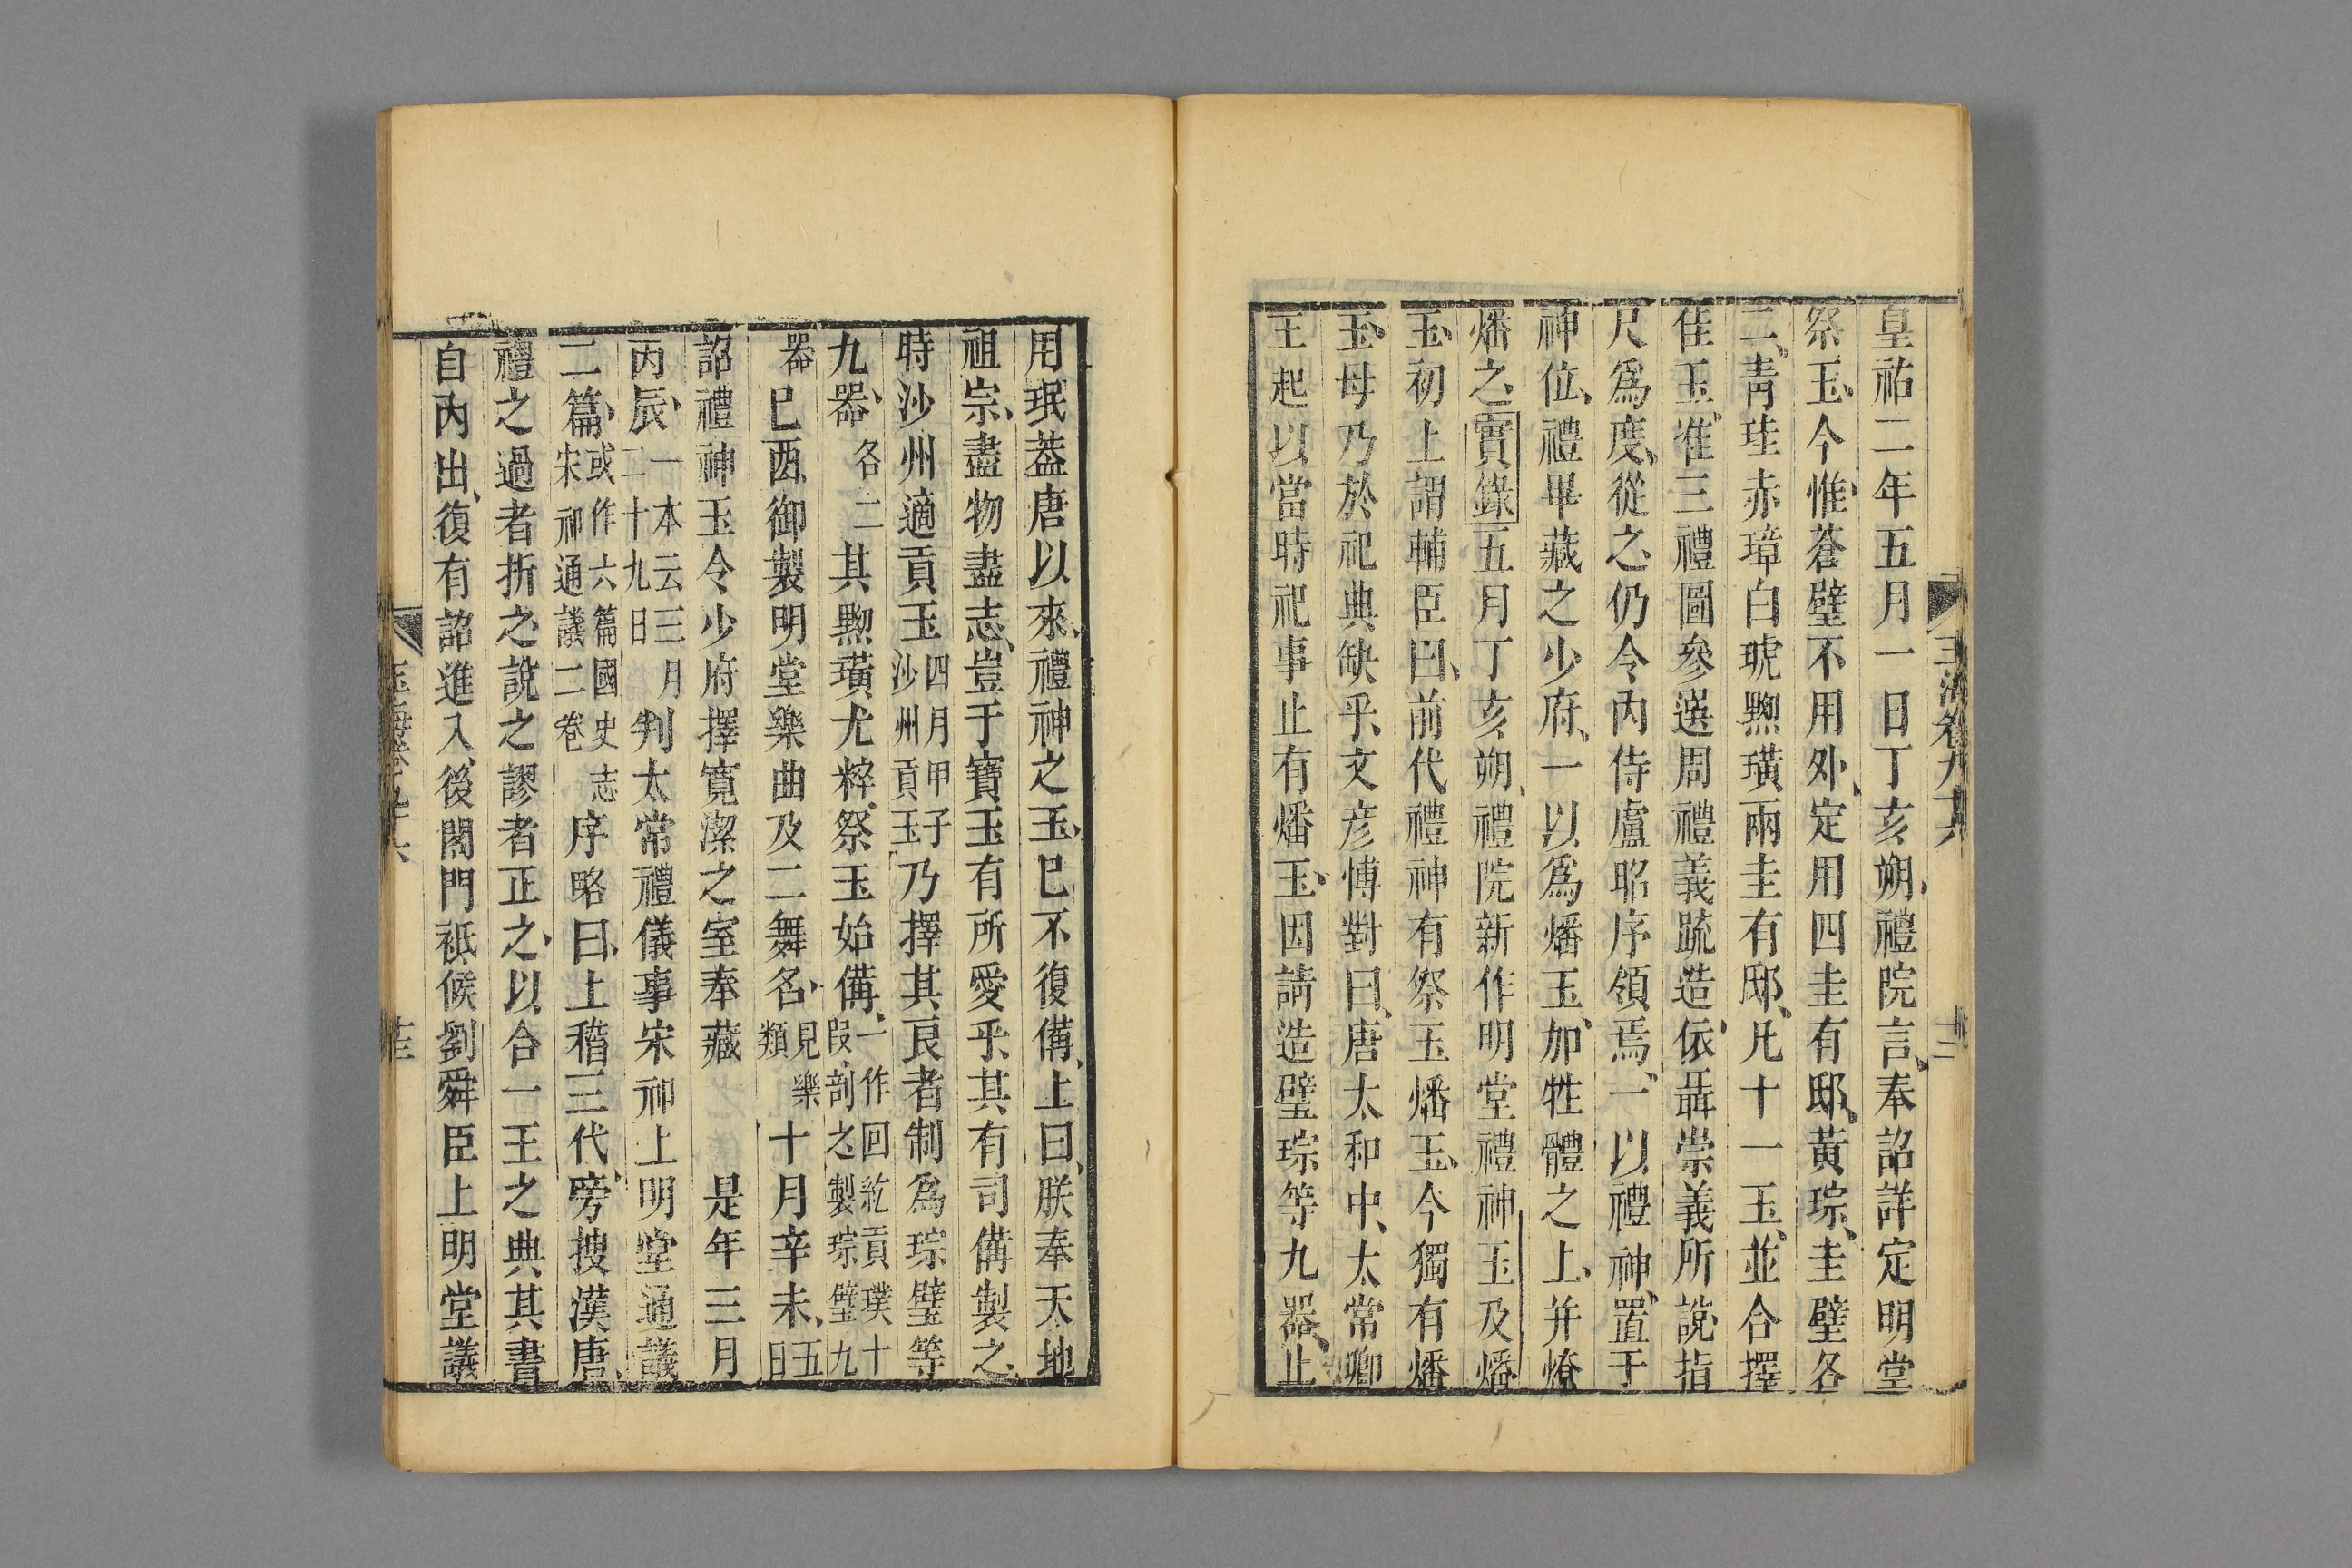 皇祐二年五月一日丁亥朔禮院言奉詔詳定明堂
祭玉今惟蒼璧不用外定用四圭有邸黃琮圭璧各
二青珪赤璋白琥黝璜兩圭有邸凡十一玉並合擇
佳玉准三禮圖參選周禮義疏造依聶崇義所說指
尺爲度從之仍令內侍盧昭序領焉一以禮神置于
神位禮畢藏之少府一以爲燔玉加牲體之上并燎
燔之實錄五月丁亥朔禮院新作明堂禮神玉及燔
玉初上謂輔臣曰前代禮神有祭玉燔玉今獨有燔
玉毋乃於祀典缺乎文彦博對曰唐太和中太常卿
王起以當時祀事止有燔玉因請造璧琮等九器止
用珉葢唐以來禮神之玉已不復備上曰朕奉天地
祖宗盡物盡志豈于寶玉有所愛乎其有司備製之
時沙州適貢玉四月甲子沙州貢玉乃擇其良者制爲琮璧等
九器各二其黝璜尤粹祭玉始備一作回紇貢璞十叚剖之製琮璧九
器已酉御製明堂樂曲及二舞名見樂類十月辛未五日
詔禮神玉令少府擇寬潔之室奉藏 是年三月
丙辰一本云三月二十九日判太常禮儀事宋祁上明堂通議
二篇或作六篇國史志宋祁通議二卷序略曰上稽三代旁搜漢唐
禮之過者折之說之謬者正之以合一王之典其書
自內出復有詔進入後閣門祗候劉舜臣上明堂議